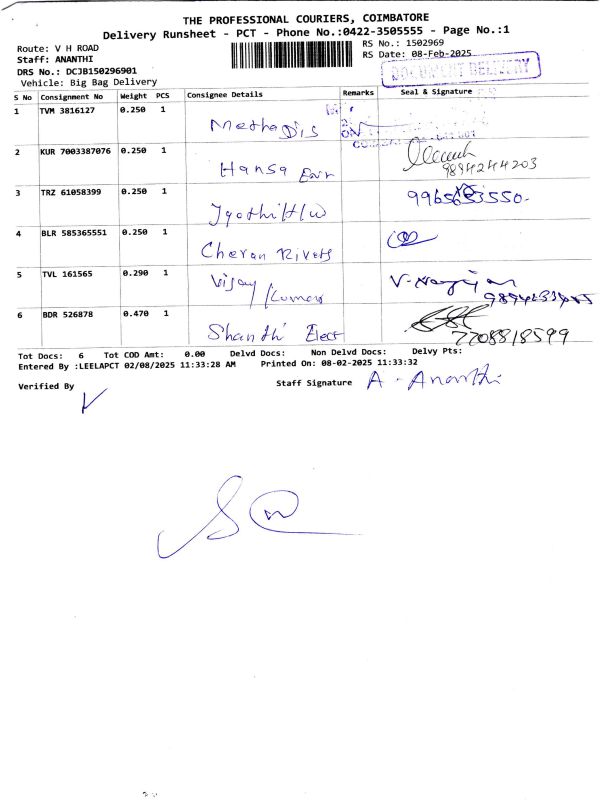 THE PROFESSIONAL COURIERS, COIMBATORE
Delivery Runsheet - PCT - Phone No.:0422-3505555 - Page No.:1
Route: V H ROAD
RS No.: 1502969
Staff: ANANTHI
RS Date: 08-Feb-2025
DRS No.: DCJB150296901
DOCUMENT DELIVERY
Vehicle: Big Bag Delivery
S No Consignment No Weight PCS Consignee Details Remarks Seal & Signature
1 TVM 3816127 0.250 1
2 KUR 7003387076 0.250 1 Hansa 9894244203
3 TRZ 61058399 0.250 1 Jyothi H/w
4 BLR 585365551 0.250 1 Cheran Rivets
5 TVL 161565 0.290 1 Vijay Kumar
6 BDR 526878 0.470 1 Shanthi Elect 2208818599
Tot Docs: 6 Tot COD Amt: 0.00 Delvd Docs: Non Delvd Docs: Delvy Pts:
Entered By :LEELAPCT 02/08/2025 11:33:28 AM Printed On: 08-02-2025 11:33:32
Verified By Staff Signature A - Ananthi